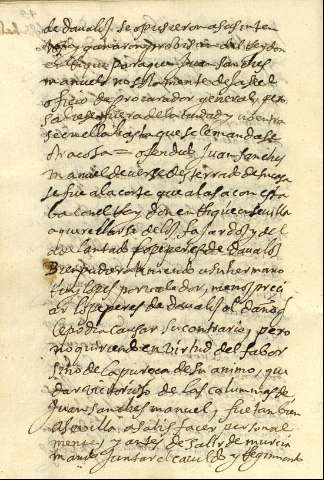 de davalos se opusieron a sus inten
tos y ganaron probision del Rey don
enrrique para que Juan sanches
manuel no solamente dejase el
oficio de procurador general, pero
saliese fuera de la ciudad y no entra
se en ella hasta que se le mandase
otra cosa = ofendido Juan sanches
manuel de verse desterrado de su casa
se fue a la corte que a la saçon esta
ba con el Rey don enrrique en sevilla
a querellarse de los fajardos y del
adelantado lope peres de davalos
bien pudiera teniendo a su hermano
por valedor, menospreçi
ar lope peres de davalos el daño q
le podia causar su contrario, pero
no queriendo en virtud del fabor
sino de la pureça de su animo, que
dar victorioso de las calumnias de
Juan sanches manuel, fue tanbien
a sevilla a satisfacer personal
mente, y antes de salir de murcia
mando juntar el cavildo y Regimiento